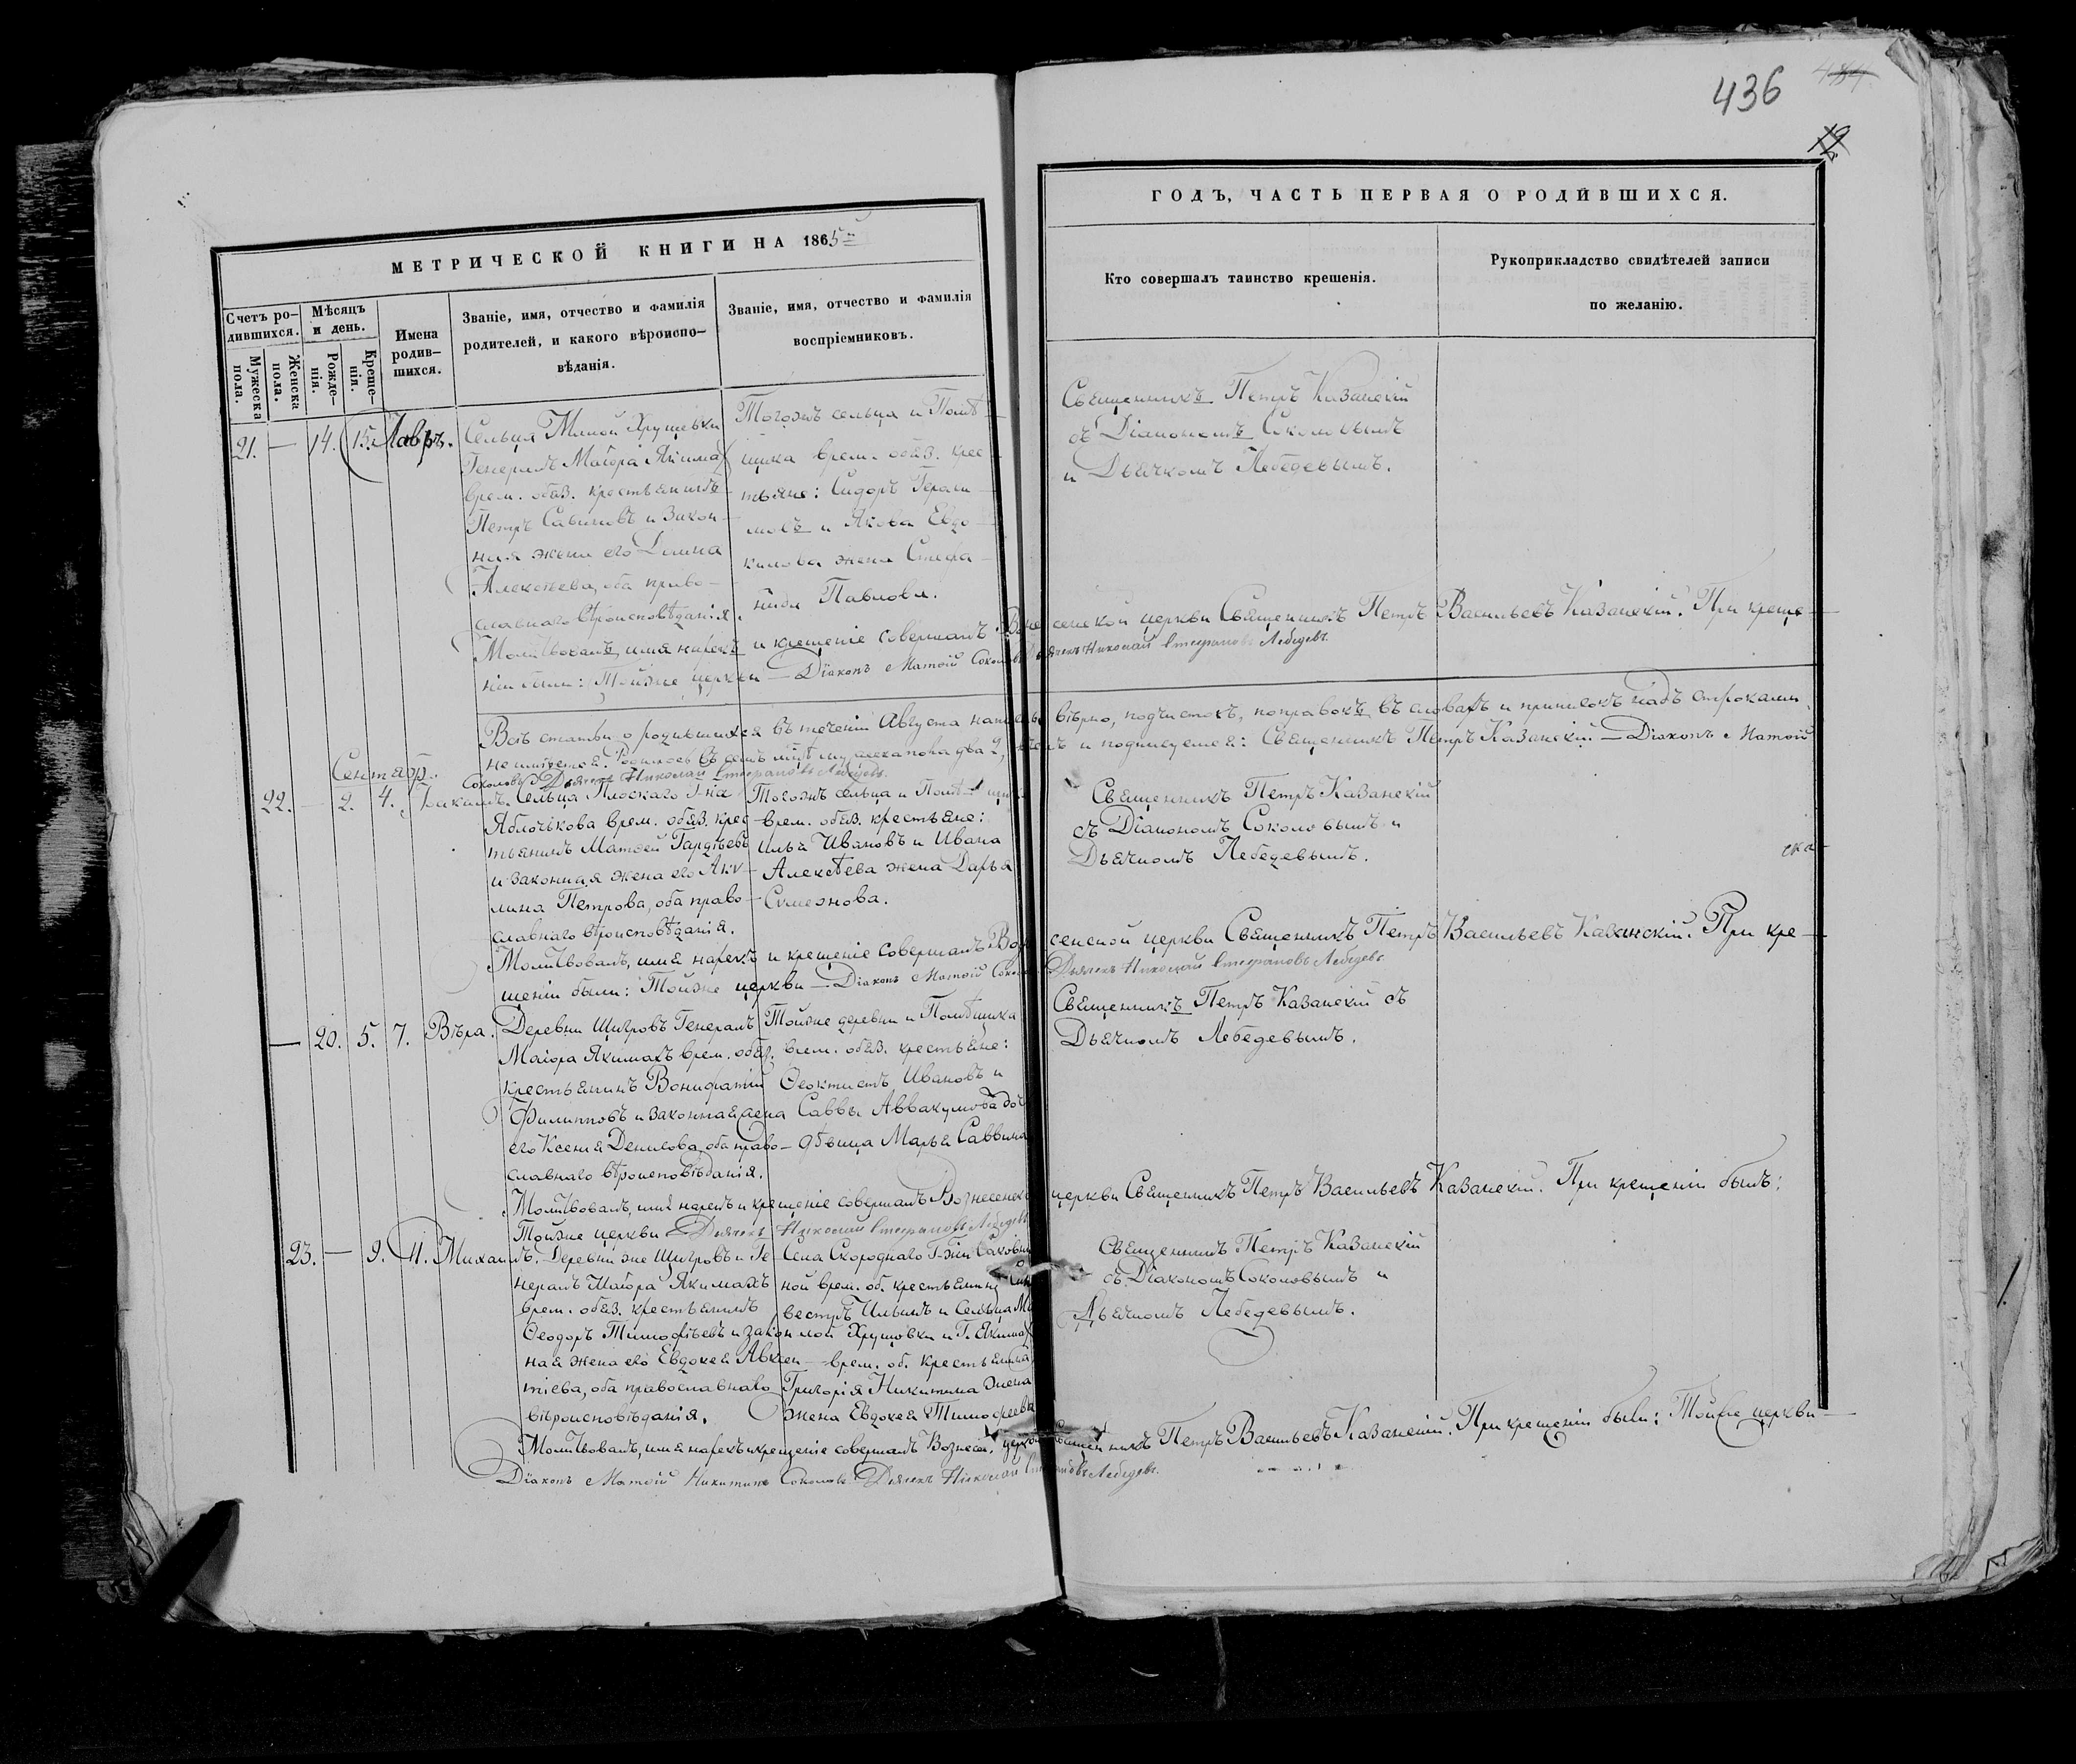 436
12
МЕТРИЧЕСКОЙ КНИГИ НА 1865
ГОДЪ, ЧАСТЬ ПЕРВАЯ О РОДИВШИХСЯ.
Счетъ ро-
дившихся.
Мужеска
пола.
Женска
пола.
Мѣсяцъ
и день.
Рожде-
нія.
Креще-
нія.
Имена
родив-
шихся.
Званіе, имя, отчество и фамилія
родителей, и какого вѣроиспо-
вѣданія.
Званіе, имя, отчество и фамилія
воспріемниковъ.
Кто совершалъ таинство крещенія.
Рукоприкладство свидѣтелей записи
по желанію.
21. — 14. 15. Лавръ.
Сельца Малой Хрущевки
Генералъ Маіора Якимах
врем. обяз. крестьянинъ
Петръ Савиновъ и закон-
ная жена его Домна
Алексѣева, оба право-
славнаго вѣроисповѣданія.
Тогожъ сельца и Помѣ-
щика врем. обяз. крес-
тьяне: Сидоръ Гераси-
мовъ и Якова Евдо-
кимова жена Стефа-
нида Павлова.
Священникъ Петръ Казанскій
съ Діакономъ Соколовымъ
и Дьячкомъ Лебедевымъ.
Молитвовалъ, имя нарекъ и крещеніе совершалъ Возне сенской церкви Священникъ Петръ Васильевъ Казанскій. При креще-
ніи были: Тойже церкви — Діаконъ Матѳій Соколовъ Дьячекъ Николай Стефановъ Лебедевъ.
Всѣ статьи о родившихся въ теченіи Августа написаны вѣрно, подчистокъ, поправокъ въ словахъ и приписокъ надъ строками
не имѣется. Родилось въ семъ мцѣ мужеска пола два 2, и подписуемся: Священникъ Петръ Казанскій. — Діаконъ Матѳій
Соколовъ Дьячекъ Николай Стефановъ Лебедевъ.
Сентябр.
22. — 2. 4.
Сельца Плоскаго Г-на
Яблочкова врем. обяз. крес-
тьянинъ Матѳей Гордѣевъ
и законная жена его Аку-
лина Петрова, оба право-
славнаго вѣроисповѣданія.
Тогожъ сельца и Помѣщи
врем. обяз. крестьяне:
Илья Ивановъ и Ивана
Алексѣева жена Дарья
Симеонова.
Священникъ Петръ Казанскій
съ Діакономъ Соколовымъ и
Дьячкомъ Лебедевымъ.
ска
Молитвовалъ, имя нарекъ и крещеніе совершалъ Воз сенской церкви Священникъ Петръ Васильевъ Казанскій. При кре-
щеніи были: Тойже церкви — Діаконъ Матѳій Соколовъ Дьячекъ Николай Стефановъ Лебедевъ
— 20. 5. 7. Вѣра.
Деревни Щигровъ Генералъ
Маіора Якимахъ врем. обяз.
крестьянинъ Вонифатій
Филипповъ и законная жена
его Ксенія Денисова, оба право-
славнаго вѣроисповѣданія.
Тойже деревни и Помѣщика
врем. обяз. крестьяне:
Ѳеоктистъ Ивановъ и
Саввы Аввакумова доч
дѣвица Марья Саввина
Священникъ Петръ Казанскій съ
Дьячкомъ Лебедевымъ.
Молитвовалъ, имя нарекъ и крещеніе совершалъ Вознесенск церкви Священникъ Петръ Васильевъ Казанскій. При крещеніи былъ:
Тойже церкви Дьячекъ Николай Стефановъ Лебедевъ
23. — 9. 11. Михаилъ.
Деревни же Щигровъ и Ге-
нералъ Маіора Якимахъ
врем. обяз. крестьянинъ
Ѳеодоръ Тимофѣевъ и закон-
ная жена его Евдокея Авксен-
тіева, оба православнаго
вѣроисповѣданія.
Села Скороднаго Г-жи
ной врем. об. крестьянинъ Сил
вестръ Ильинъ и Сельца Ма
лой Хрущовки и Г. Якимах
врем. об. крестьянина
Григорія Никитина жена
жена Евдокея Тимофеева
Священникъ Петръ Казанскій
съ Діакономъ Соколовымъ и
Дьячкомъ Лебедевымъ.
Молитвовалъ, имя нарекъ и крещеніе совершалъ Вознесен. церкви Священникъ Петръ Васильевъ Казанскій. При крещеніи были: Тойже церкви —
Діаконъ Матѳій Никитинъ Соколовъ. Дьячекъ Николай Стефановъ Лебедевъ.